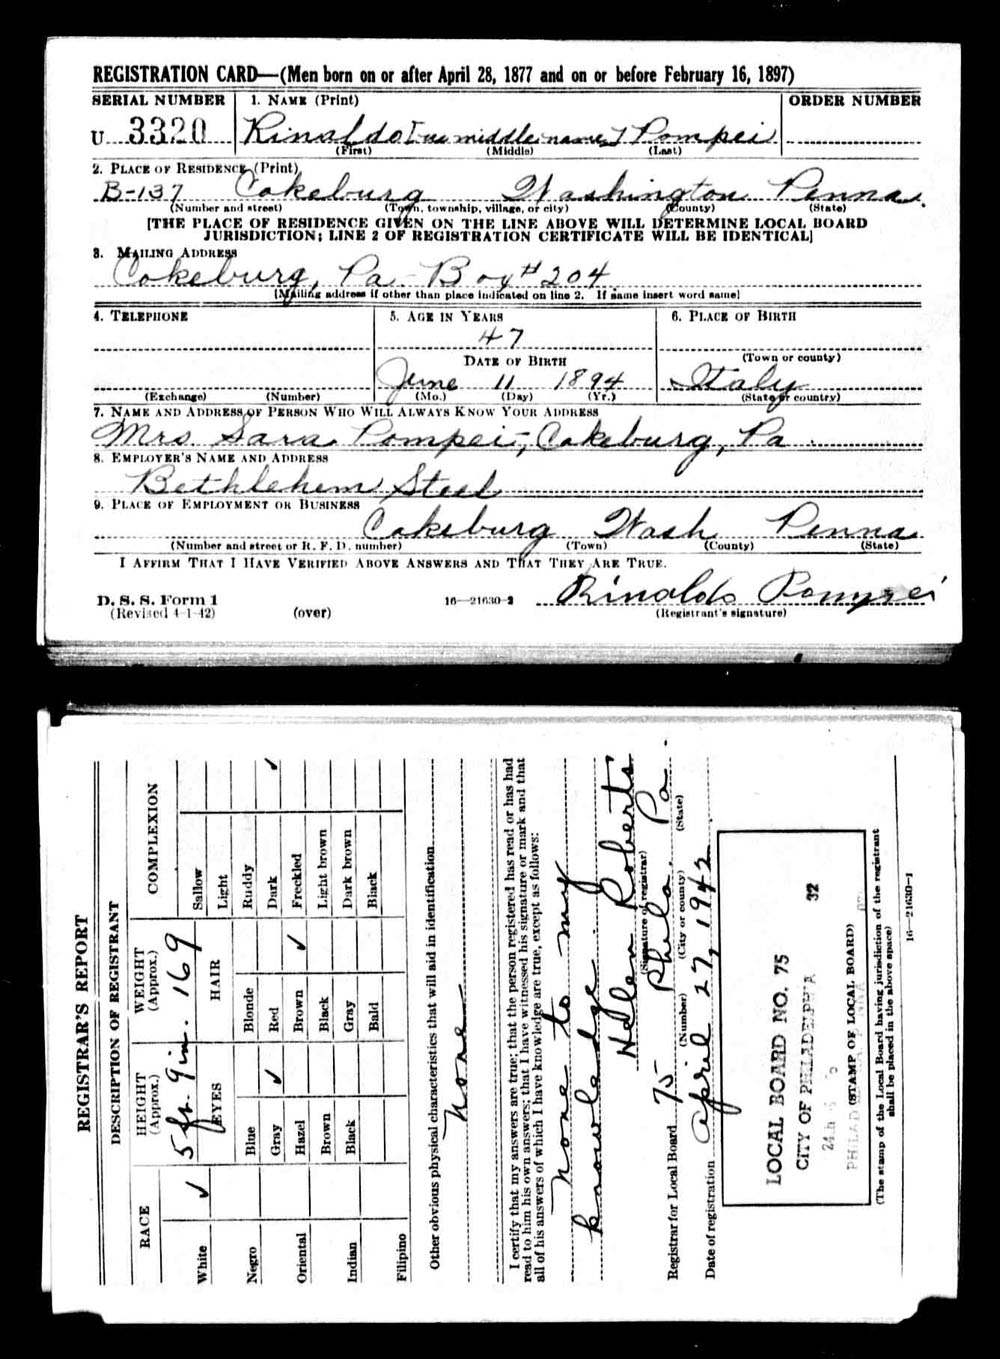 REGISTRATION CARD—(Men born on or after April 28, 1877 and on or before February 16, 1897)
SERIAL NUMBER 1. NAME (Print) ORDER NUMBER
U 3320 Rinaldo [no middle name] Pompei
(First) (Middle) (Last)
2. PLACE OF RESIDENCE (Print)
B-137 Cokeburg Washington Penna.
(Number and street) (Town, township, village, or city) (County) (State)
[THE PLACE OF RESIDENCE GIVEN ON THE LINE ABOVE WILL DETERMINE LOCAL BOARD
JURISDICTION; LINE 2 OF REGISTRATION CERTIFICATE WILL BE IDENTICAL]
3. MAILING ADDRESS
Cokeburg, Pa - Box # 204
[Mailing address if other than place indicated on line 2. If same insert word same]
4. TELEPHONE 5. AGE IN YEARS 6. PLACE OF BIRTH
47
DATE OF BIRTH (Town or county)
June 11 1894 Italy
(Exchange) (Number) (Mo.) (Day) (Yr.) (State or country)
7. NAME AND ADDRESS OF PERSON WHO WILL ALWAYS KNOW YOUR ADDRESS
Mrs. Sara Pompei-, Cokeburg, Pa.
8. EMPLOYER'S NAME AND ADDRESS
Bethlehem Steel
9. PLACE OF EMPLOYMENT OR BUSINESS
Cokeburg Wash Penna
(Number and street or R. F. D. number) (Town) (County) (State)
I AFFIRM THAT I HAVE VERIFIED ABOVE ANSWERS AND THAT THEY ARE TRUE.
Rinaldo Pompei
D. S. S. Form 1
(Revised 4-1-42) (over) 16—21630-2 (Registrant's signature)
REGISTRAR'S REPORT
DESCRIPTION OF REGISTRANT
RACE HEIGHT (Approx.) WEIGHT (Approx.) COMPLEXION
5 ft. 9 in. 169
White ✓ EYES HAIR Sallow
Light
Negro Blue Blonde Ruddy
Gray ✓ Red Dark ✓
Oriental Hazel Brown ✓ Freckled
Brown Black Light brown
Indian Black Gray Dark brown
Bald Black
Filipino
Other obvious physical characteristics that will aid in identification
None
I certify that my answers are true; that the person registered has read or has had
read to him his own answers; that I have witnessed his signature or mark and that
all of his answers of which I have knowledge are true, except as follows:
None to my
knowledge.
Helen Roberts
(Signature of registrar)
Registrar for Local Board 75 Phila. Pa.
(Number) (City or county) (State)
Date of registration April 27, 1942
LOCAL BOARD NO. 75
CITY OF PHILADELPHIA 32
(STAMP OF LOCAL BOARD)
(The stamp of the Local Board having jurisdiction of the registrant
shall be placed in the above space)
16—21630-1